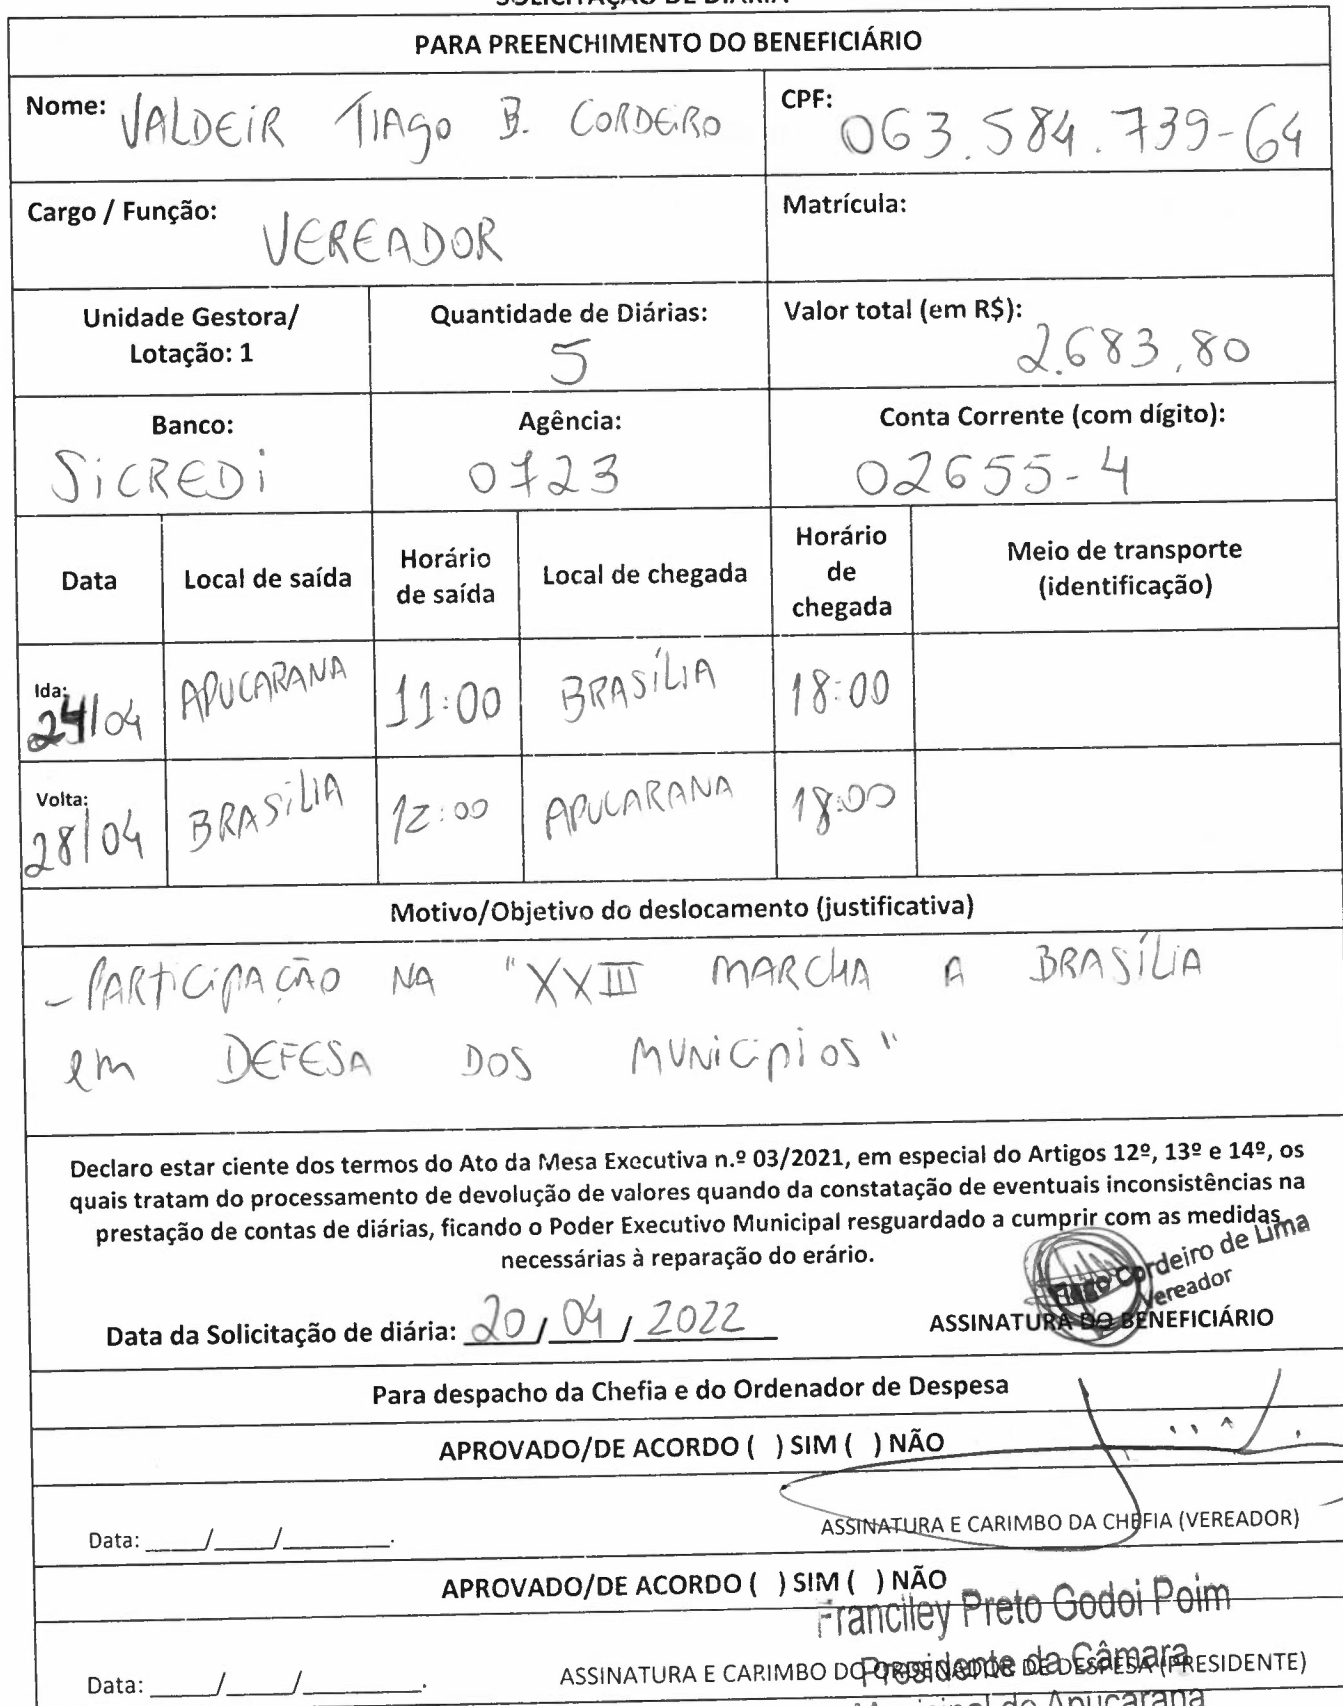 SOLICITAÇÃO DE DIÁRIA
PARA PREENCHIMENTO DO BENEFICIÁRIO
Nome: VALDEIR TIAGO B. CORDEIRO
CPF: 063.584.739-64
Cargo / Função: VEREADOR
Matrícula:
Unidade Gestora/
Lotação: 1
Quantidade de Diárias:
5
Valor total (em R$):
2.683,80
Banco:
SiCREDi
Agência:
0723
Conta Corrente (com dígito):
02655-4
Data
Local de saída
Horário
de saída
Local de chegada
Horário
de
chegada
Meio de transporte
(identificação)
Ida:
24/04
APUCARANA
11:00
BRASÍLIA
18:00
Volta:
28/04
BRASÍLIA
12:00
APUCARANA
18:00
Motivo/Objetivo do deslocamento (justificativa)
- PARTICIPAÇÃO NA "XXIII MARCHA A BRASÍLIA
em DEFESA DOS MUNiCípiOS"
Declaro estar ciente dos termos do Ato da Mesa Executiva n.º 03/2021, em especial do Artigos 12º, 13º e 14º, os
quais tratam do processamento de devolução de valores quando da constatação de eventuais inconsistências na
prestação de contas de diárias, ficando o Poder Executivo Municipal resguardado a cumprir com as medidas
necessárias à reparação do erário.
Tiago Cordeiro de Lima
Vereador
Data da Solicitação de diária: 20/04/2022
ASSINATURA DO BENEFICIÁRIO
Para despacho da Chefia e do Ordenador de Despesa
APROVADO/DE ACORDO ( ) SIM ( ) NÃO
Data: ____/____/________.
ASSINATURA E CARIMBO DA CHEFIA (VEREADOR)
APROVADO/DE ACORDO ( ) SIM ( ) NÃO
Franciley Preto Godoi Poim
Presidente da Câmara
Data: ____/____/________.
ASSINATURA E CARIMBO DO ORDENADOR DE DESPESA (PRESIDENTE)
Municipal de Apucarana